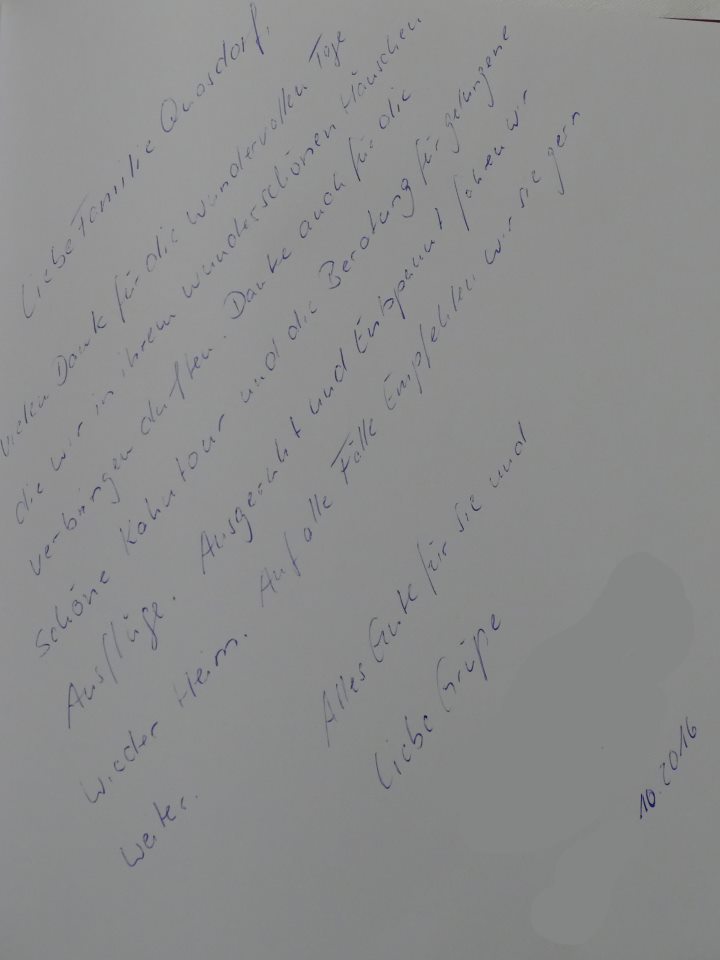 Liebe Familie Quosdorf,
vielen Dank für die wundervollen Tage
die wir in ihrem wunderschönen Häuschen
verbringen durften. Danke auch für die
schöne Kahntour und die Beratung für gelungene
Ausflüge. Ausgeruht und Entspannt fahren wir
wieder Heim. Auf alle Fälle Empfehlen wir sie gern
weiter.
Alles Gute für sie und
Liebe Grüße
10.2016